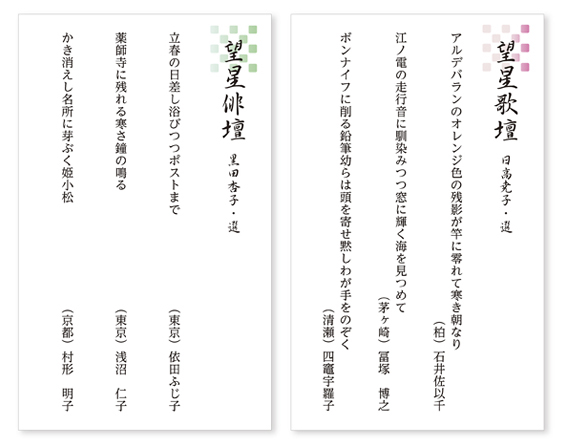 望星歌壇 日高堯子・選
アルデバランのオレンジ色の残影が竿に零れて寒き朝なり
（柏）石井佐以千
江ノ電の走行音に馴染みつつ窓に輝く海を見つめて
（茅ヶ崎）冨塚　博之
ボンナイフに削る鉛筆幼らは頭を寄せ黙しわが手をのぞく
（清瀬）四竈宇羅子
望星俳壇 黒田杏子・選
立春の日差し浴びつつポストまで
（東京）依田ふじ子
薬師寺に残れる寒さ鐘の鳴る
（東京）浅沼　仁子
かき消えし名所に芽ぶく姫小松
（京都）村形　明子